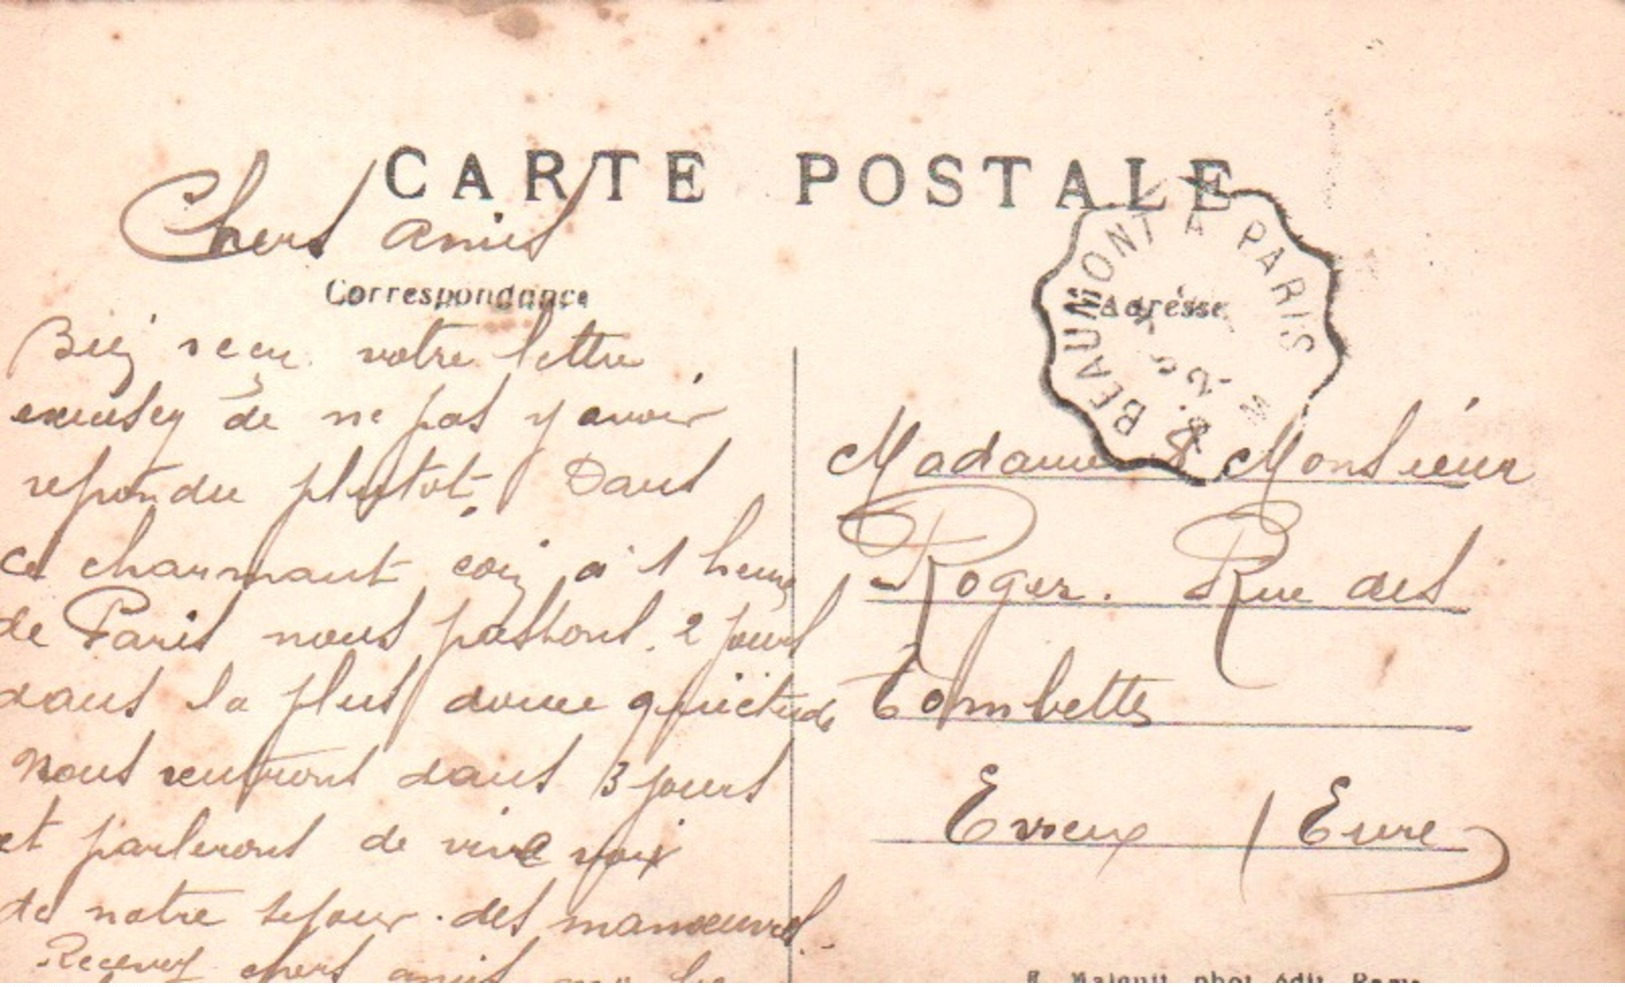 CARTE POSTALE
Chers amis
Correspondance
Adresse
BEAUMONT A PARIS
Bien reçu votre lettre
excusez de ne pas y avoir
repondu plutôt. Dans
ce charmant coin à 1 heure
de Paris nous passons 2 jours
dans la plus douce quiétude
Nous rentrons dans 3 jours
et parlerons de vive voix
de notre séjour. des manœuvres.
Recevez chers amis
Madame & Monsieur
Roger. Rue des
Tombettes
Evreux / Eure
phot. édit.